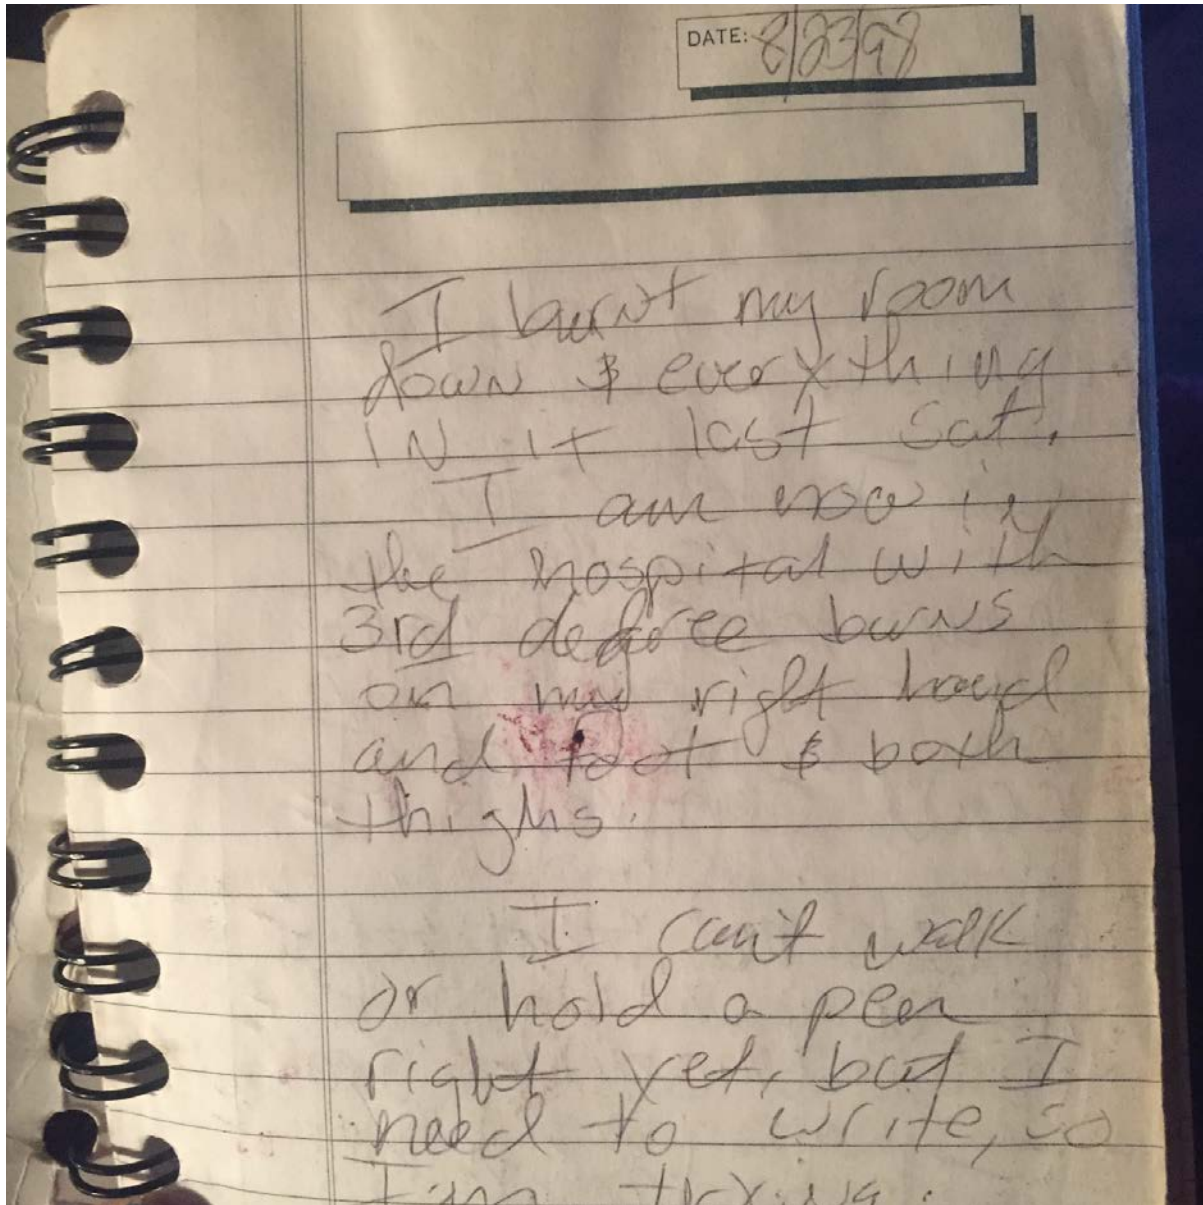 DATE: 8/23/98
I burnt my room
down & everything
in it last Sat.
I am now in
the hospital with
3rd degree burns
on my right hand
and foot & both
thighs.
I can't walk
or hold a pen
right yet, but I
need to write, so
I am trying.